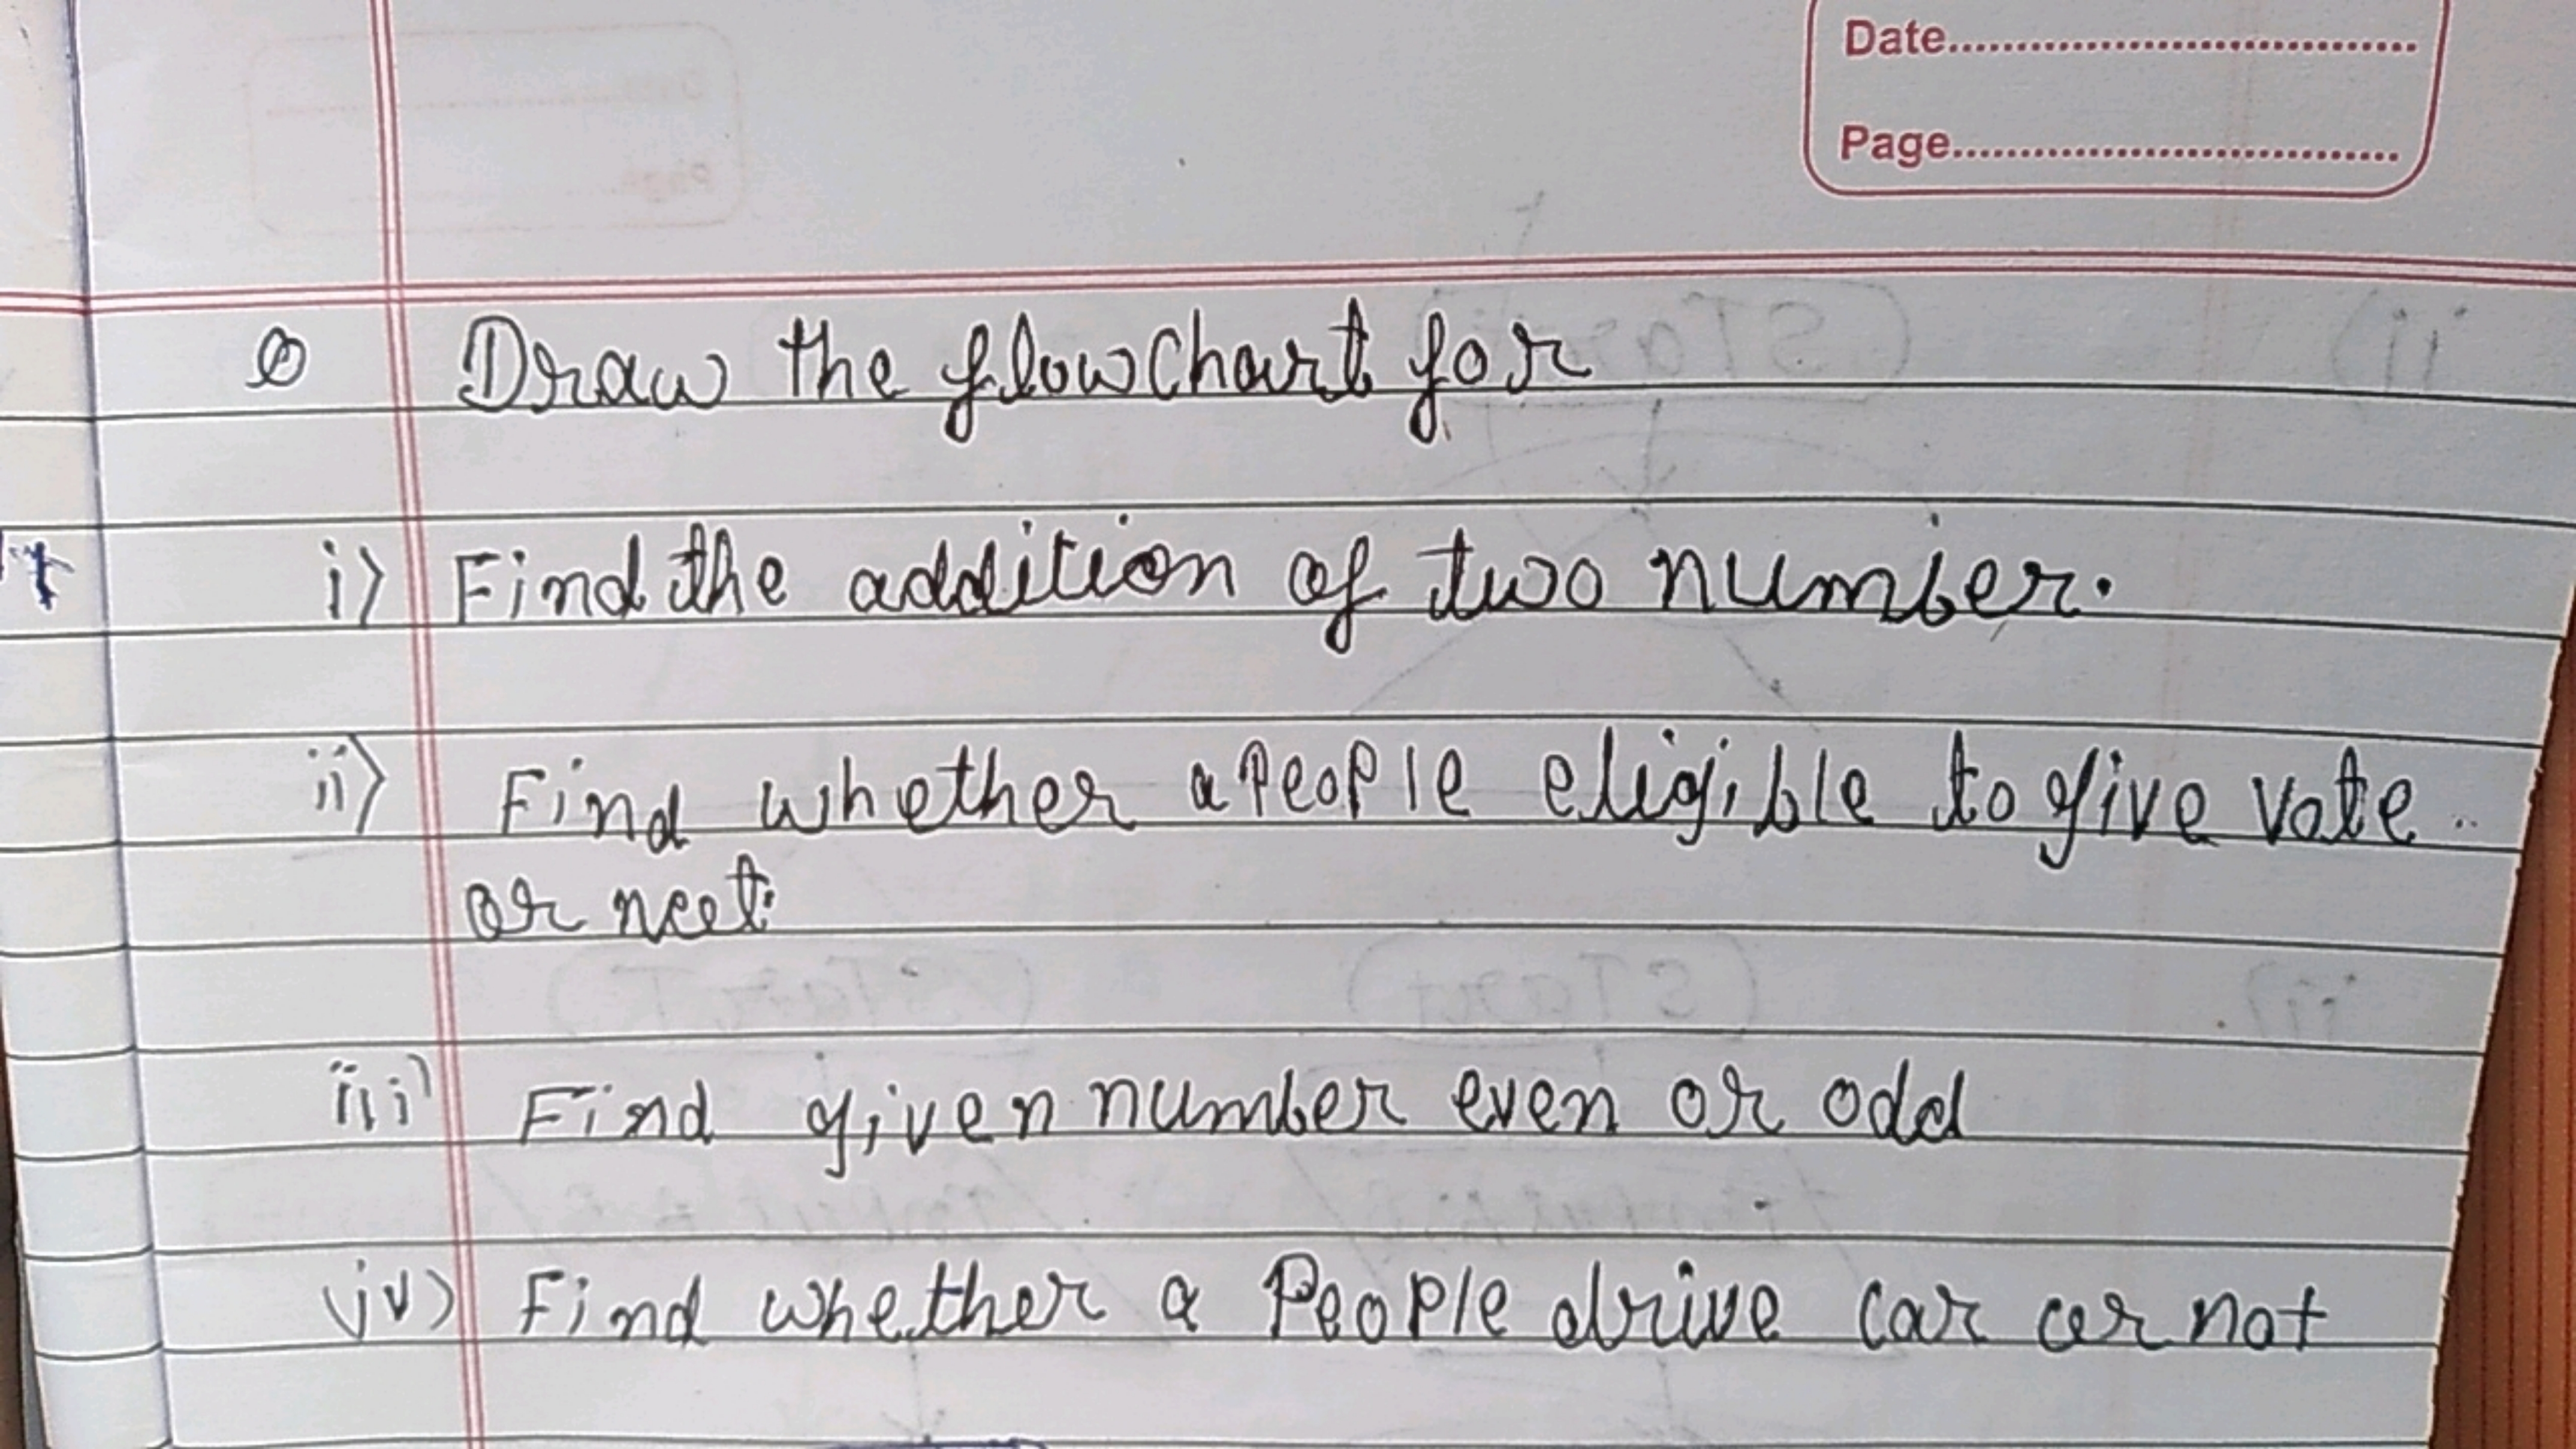 Date
Page
Draw the flowchart for
i) Find the addition of two number.
ii) Find whether a people eligible to give vote
or not
iii) Find given number even or odd
iv) Find whether a people drive car or not